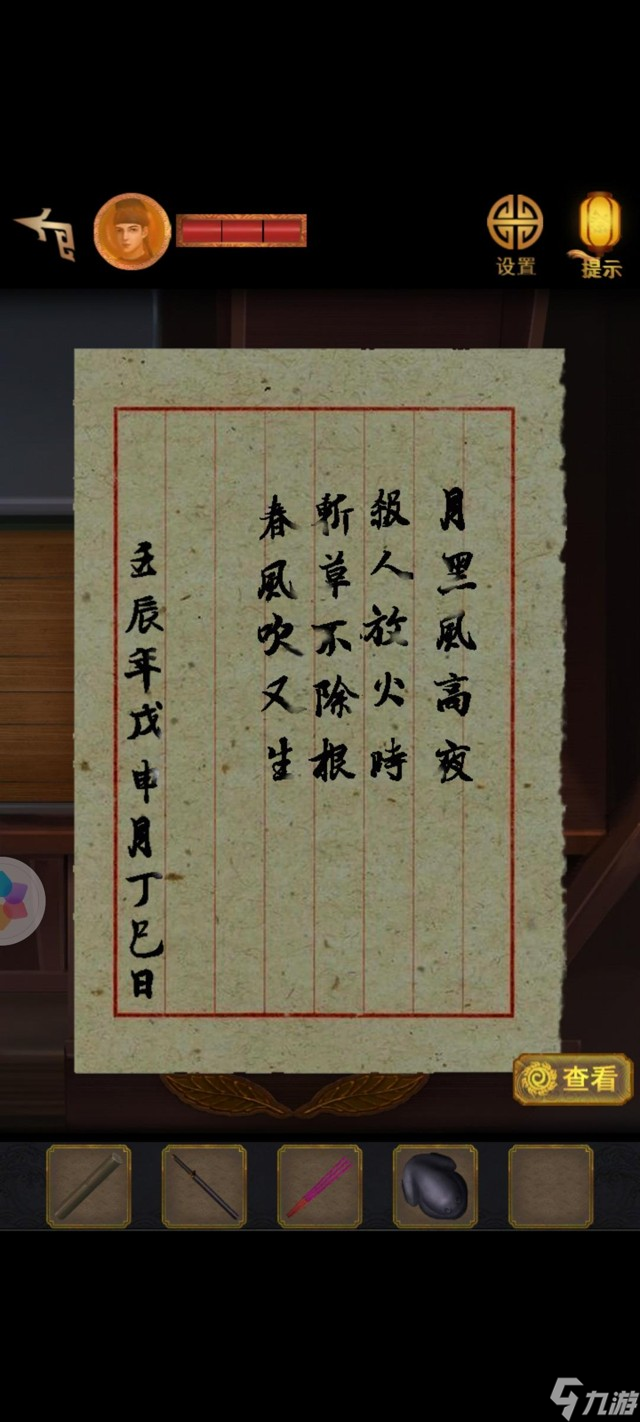 设置
提示
月黑風高夜
殺人放火時
斬草不除根
春風吹又生
壬辰年戊申月丁巳日
查看
九游